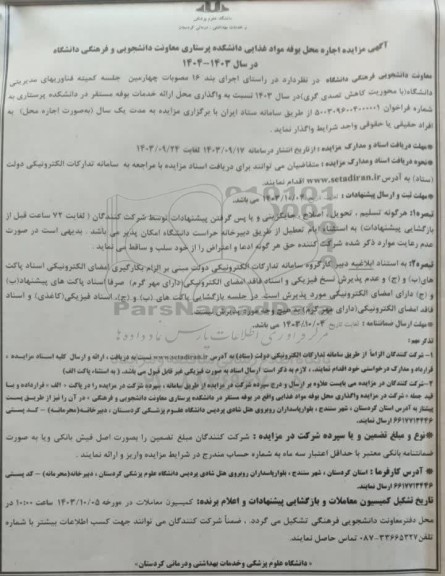 دانشگاه علوم پزشکی
و خدمات بهداشتی ، درمانی کردستان
آگهی مزایده اجاره محل بوفه مواد غذایی دانشکده پرستاری معاونت دانشجویی و فرهنگی دانشگاه
در سال ۱۴۰۳-۱۴۰۴
معاونت دانشجویی فرهنگی دانشگاه در نظر دارد در راستای اجرای بند ۱۶ مصوبات چهارمین جلسه کمیته فناوریهای مدیریتی
دانشگاه (با محوریت کاهش تصدی گری) در سال ۱۴۰۳ نسبت به واگذاری محل ارائه خدمات بوفه مستقر در دانشکده پرستاری به
شماره فراخوان از طریق سامانه ستاد ایران با برگزاری مزایده به مدت یک سال (به صورت اجاره محل) به
افراد حقیقی یا حقوقی واجد شرایط واگذار نماید .
*مهلت دریافت اسناد و مدارک مزایده : از تاریخ انتشار در سامانه ۱۴۰۳/۰۹/۱۷ لغایت ۱۴۰۳/۰۹/۲۴
*نحوه دریافت اسناد ومدارک مزایده : متقاضیان می توانند برای دریافت اسناد مزایده با مراجعه به سامانه تدارکات الکترونیکی دولت
(ستاد) به آدرس www.setadiran.ir اقدام نمایند.
*مهلت ثبت و ارسال پیشنهادات : ۱۴۰۳/۱۰/۰۴ می باشد.
تبصره۱: هرگونه تسلیم ، تحویل ، اصلاح ، جایگزینی و یا پس گرفتن پیشنهادات توسط شرکت کنندگان ( لغایت ۷۲ ساعت قبل از
بازگشایی پیشنهادات) به استثناء ایام تعطیل از طریق دبیرخانه حراست دانشگاه امکان پذیر می باشد . بدیهی است در صورت
عدم رعایت موارد ذکر شده شرکت کننده حق هر گونه ادعا و اعتراض را از خود سلب و ساقط می نماید.
تبصره۲: به استناد ابلاغیه دبیر کارگروه سامانه تدارکات الکترونیکی دولت مبنی بر الزام بکارگیری امضای الکترونیکی اسناد پاکت
های(ب) و (ج) و عدم پذیرش نسخ فیزیکی و اسناد فاقد امضای الکترونیکی(دارای مهر گرم) صرفا اسناد پاکت های پیشنهاد(ب)
و (ج) دارای امضای الکترونیکی مورد پذیرش است. در جلسه بازگشایی پاکت های (ب) و (ج)، اسناد فیزیکی(کاغذی) و اسناد
فاقد امضای الکترونیکی(دارای مهر گرم) به هیچ وجه مورد پذیرش نیست.
*مهلت ارسال ضمانتنامه : لغایت تاریخ می باشد.
تذکر مهم :
۱- شرکت کنندگان الزاماً از طریق سامانه تدارکات الکترونیکی دولت (ستاد) به آدرس www.setadiran.ir نسبت به دریافت ، ارائه و ارسال کلیه اسناد مزایده ،
قرارداد و مدارک درخواستی خود اقدام نمایند . لازم به ذکر است ارسال اسناد به صورت فیزیکی غیر قابل قبول می باشد. ( به استثناء پاکت الف)
۲- شرکت کنندگان در مزایده می بایست علاوه بر ارسال و درج سپرده شرکت در مزایده از طریق سامانه ، سپرده شرکت در مزایده را در پاکت « الف » قرارداده و با
قید جمله « شرکت در مزایده واگذاری محل بوفه مواد غذایی واقع در بوفه مستقر در دانشکده پرستاری معاونت دانشجویی و فرهنگی » در آن را نیز از طریق پست
پیشتاز به آدرس استان کردستان ، شهر سنندج ، بلوار پاسداران روبروی هتل شادی پردیس دانشگاه علوم پزشکی کردستان ، دبیرخانه(محرمانه) – کد پستی
۶۶۱۷۷۱۳۴۴۶ ارسال نمایند.
*نوع و مبلغ تضمین و یا سپرده شرکت در مزایده : شرکت کنندگان مبلغ تضمین را بصورت اصل فیش بانکی ویا به صورت
ضمانتنامه بانکی معتبر با حداقل اعتبار سه ماه به شماره حساب مندرج در شرایط مزایده واریز و ارائه نمایند .
* آدرس کارفرما : استان کردستان ، شهر سنندج ، بلوار پاسداران روبروی هتل شادی پردیس دانشگاه علوم پزشکی کردستان ، دبیرخانه(محرمانه) – کد پستی
۶۶۱۷۷۱۳۴۴۶ ارسال نمایند.
تاریخ تشکیل کمیسیون معاملات و بازگشایی پیشنهادات و اعلام برنده: کمیسیون معاملات در مورخه ۱۴۰۳/۱۰/۰۵ ساعت ۱۰:۰۰ در
محل دفتر معاونت دانشجویی فرهنگی تشکیل می گردد . ضمناً شرکت کنندگان می توانند جهت کسب اطلاعات بیشتر با شماره
تلفن ۳۳۶۶۵۳۲۷-۰۸۷ تماس حاصل نمایند.
« دانشگاه علوم پزشکی وخدمات بهداشتی ودرمانی کردستان »